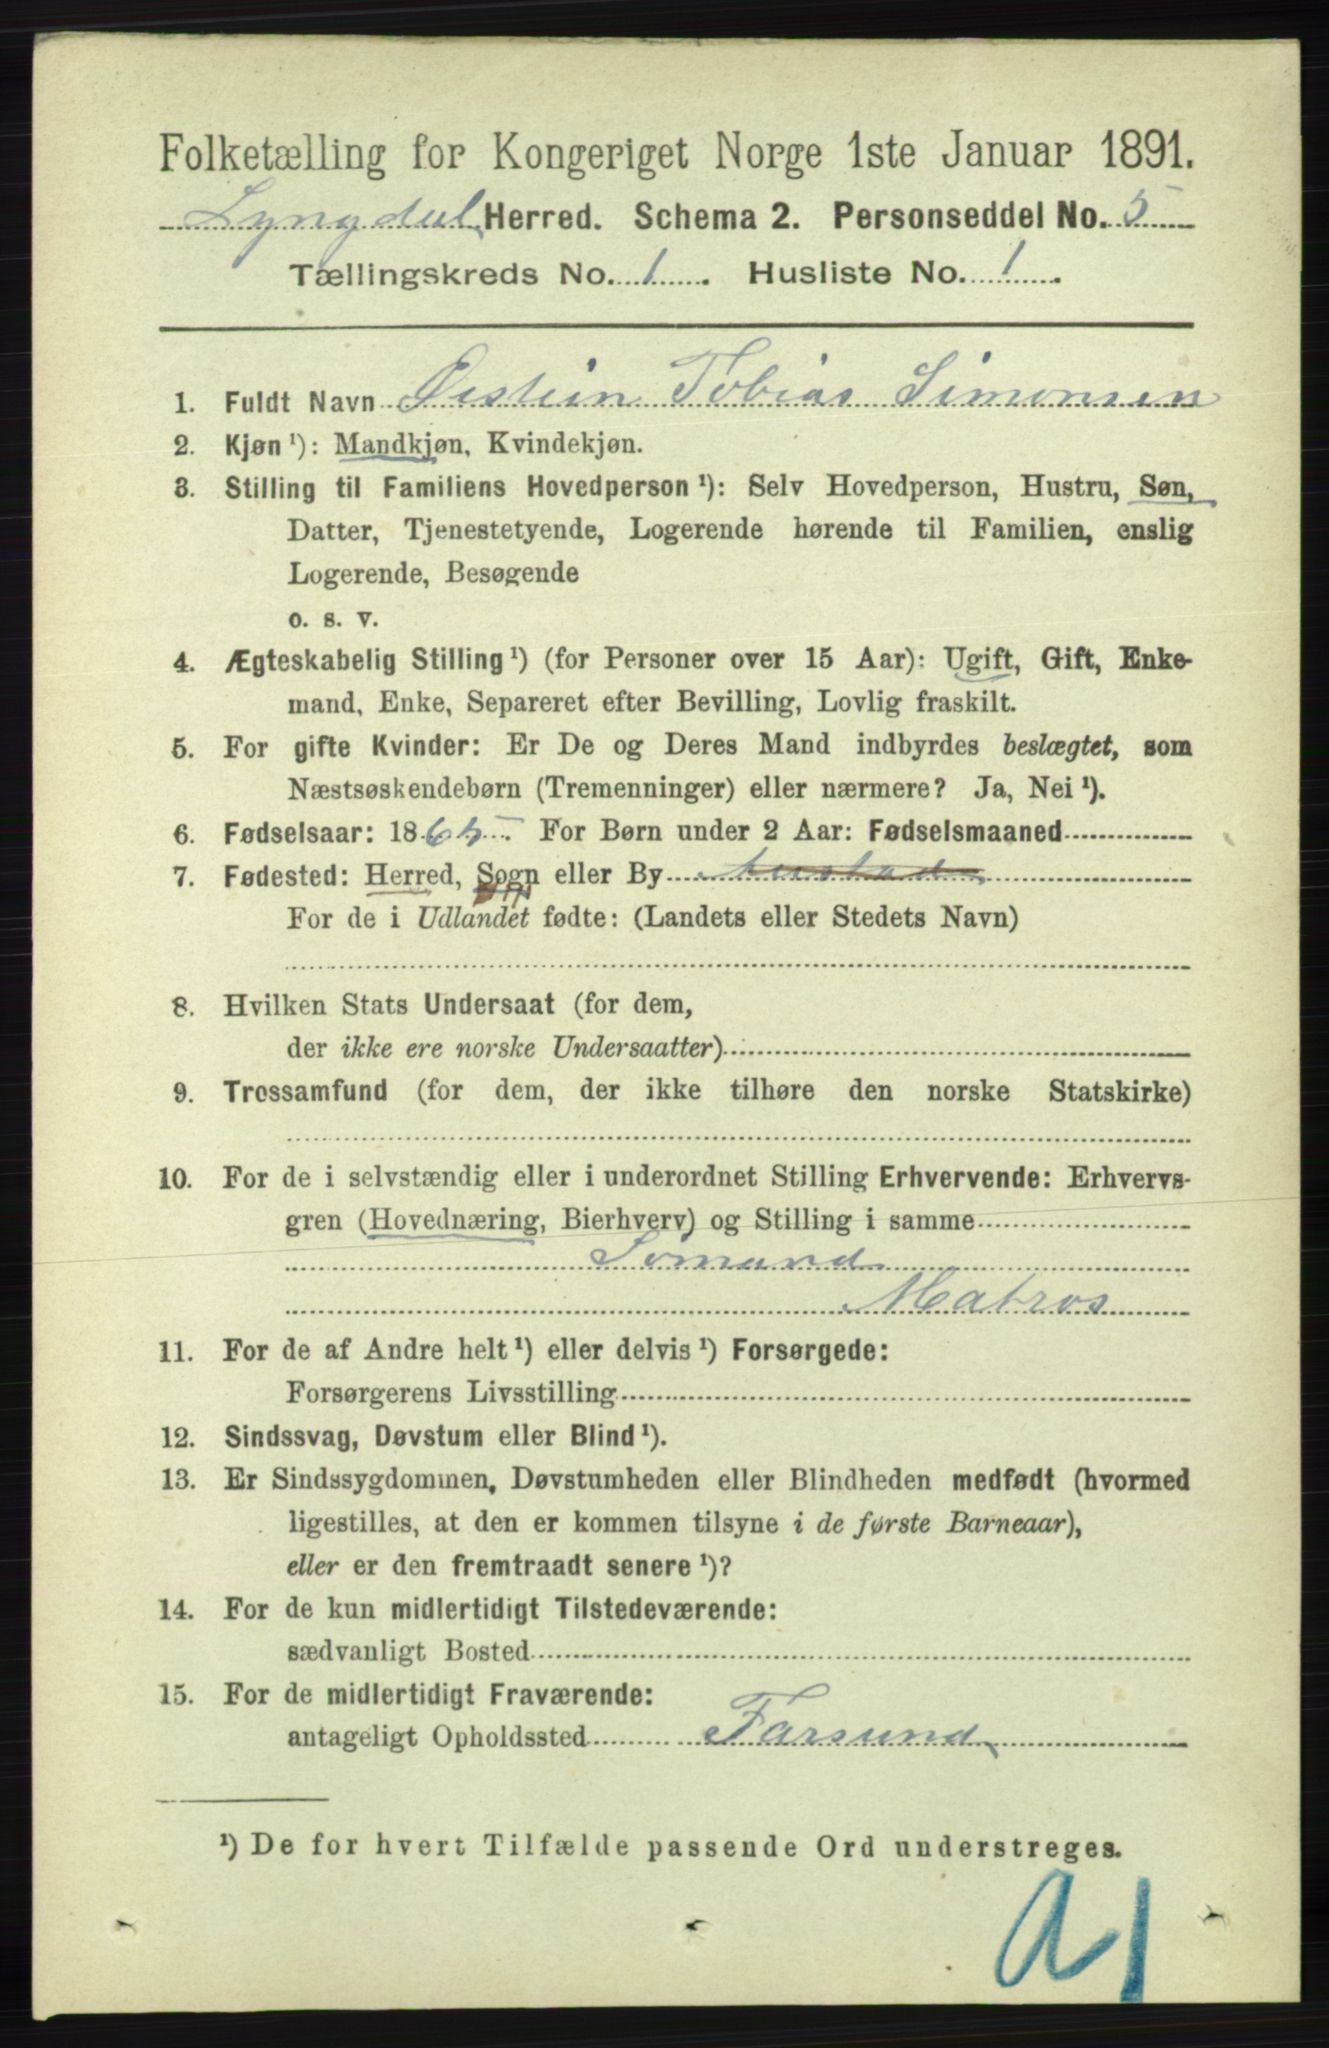 Folketælling for Kongeriget Norge 1ste Januar 1891.
Lyngdal Herred. Schema 2. Personseddel No. 5
Tællingskreds No. 1. Husliste No. 1.
1. Fuldt Navn Østein Tobias Simonsen
2. Kjøn ¹): Mandkjøn, Kvindekjøn.
3. Stilling til Familiens Hovedperson ¹): Selv Hovedperson, Hustru, Søn,
Datter, Tjenestetyende, Logerende hørende til Familien, enslig
Logerende, Besøgende
o. s. v.
4. Ægteskabelig Stilling ¹) (for Personer over 15 Aar): Ugift, Gift, Enke-
mand, Enke, Separeret efter Bevilling, Lovlig fraskilt.
5. For gifte Kvinder: Er De og Deres Mand indbyrdes beslægtet, som
Næstsøskendebørn (Tremenninger) eller nærmere? Ja, Nei ¹).
6. Fødselsaar: 1865. For Børn under 2 Aar: Fødselsmaaned
7. Fødested: Herred, Sogn eller By
For de i Udlandet fødte: (Landets eller Stedets Navn)
8. Hvilken Stats Undersaat (for dem,
der ikke ere norske Undersaatter)
9. Trossamfund (for dem, der ikke tilhøre den norske Statskirke)
10. For de i selvstændig eller i underordnet Stilling Erhvervende: Erhvervs-
gren (Hovednæring, Bierhverv) og Stilling i samme
Sømand
Matros
11. For de af Andre helt ¹) eller delvis ¹) Forsørgede:
Forsørgerens Livsstilling
12. Sindssvag, Døvstum eller Blind ¹).
13. Er Sindssygdommen, Døvstumheden eller Blindheden medfødt (hvormed
ligestilles, at den er kommen tilsyne i de første Barneaar),
eller er den fremtraadt senere ¹)?
14. For de kun midlertidigt Tilstedeværende:
sædvanligt Bosted
15. For de midlertidigt Fraværende:
antageligt Opholdssted Farsund
¹) De for hvert Tilfælde passende Ord understreges.